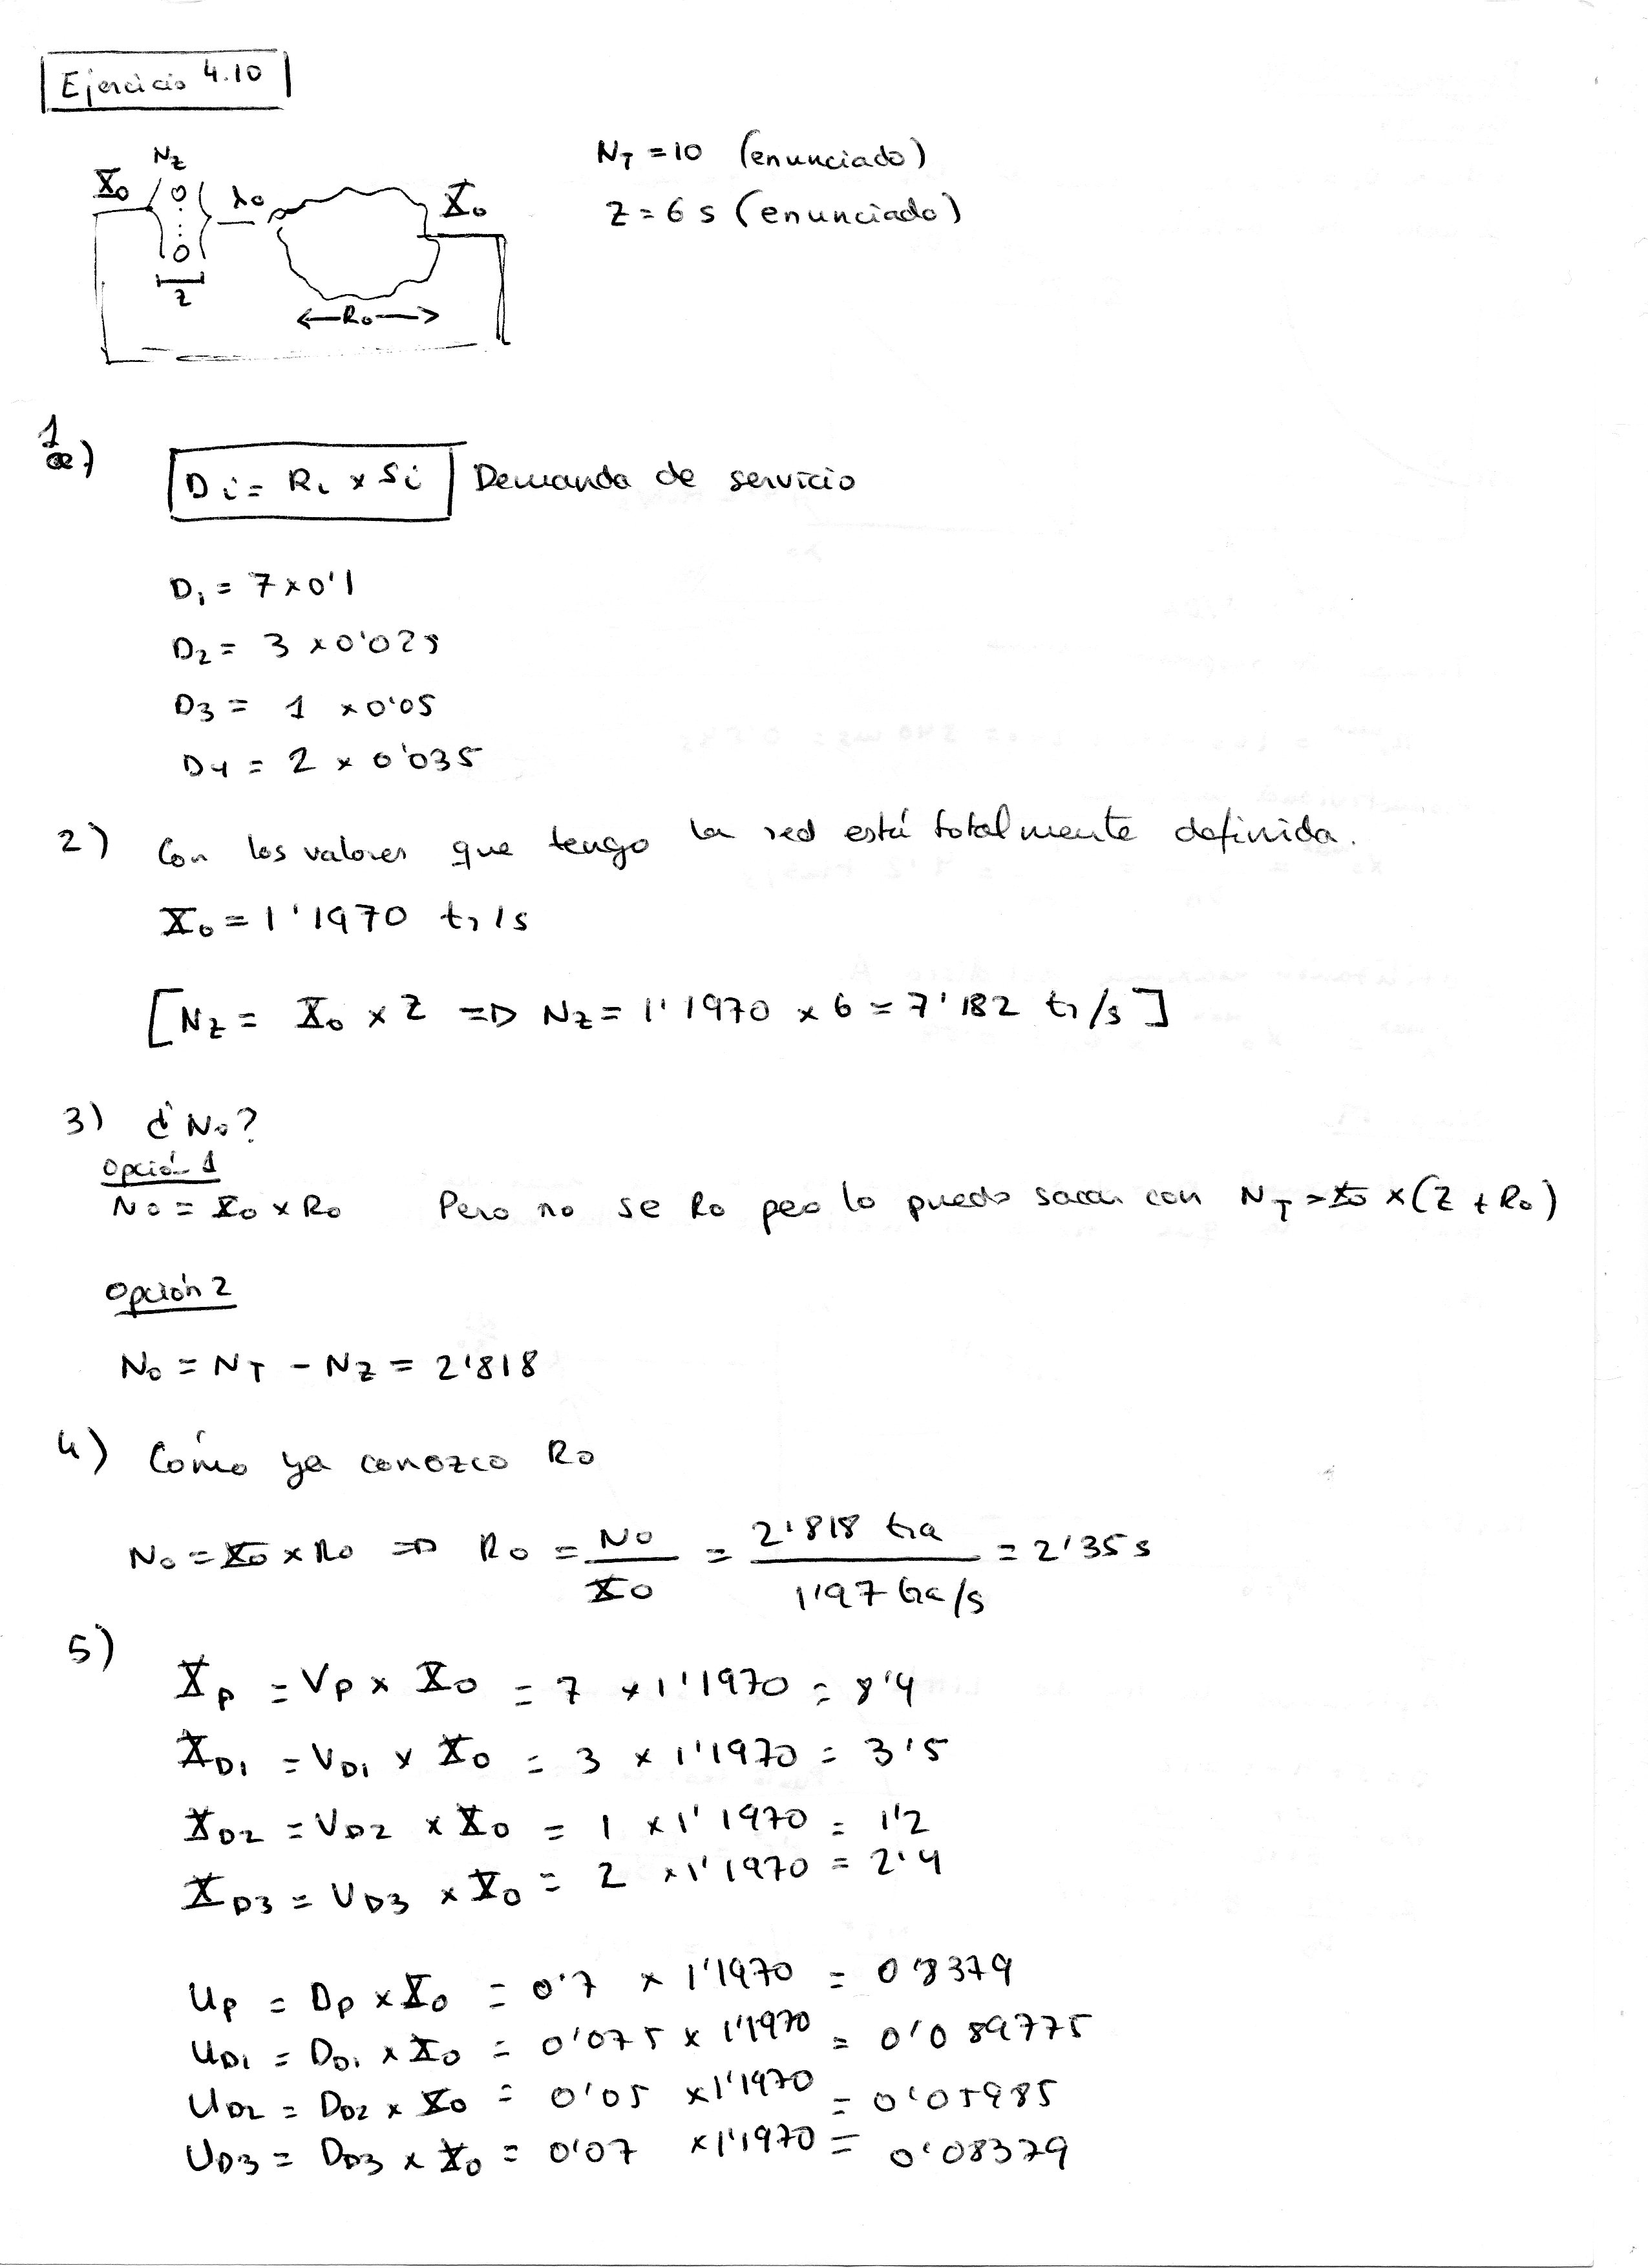 Ejercicio 4.10
Nz
X0 λ0 X0
z
R0
NT = 10 (enunciado)
Z = 6 s (enunciado)
1
a)
Di = Ri x Si Demanda de servicio
D1 = 7 x 0'1
D2 = 3 x 0'025
D3 = 1 x 0'05
D4 = 2 x 0'035
2) Con los valores que tengo la red está totalmente definida.
X0 = 1'1970 tr/s
[Nz = X0 x Z => Nz = 1'1970 x 6 = 7'182 tr/s]
3) ¿N0?
Opción 1
N0 = X0 x R0 Pero no se R0 peo lo puedo sacar con NT = X0 x (Z + R0)
Opción 2
N0 = NT - NZ = 2'818
4) Cómo ya conozco R0
N0 = X0 x R0 => R0 = N0 / X0 = 2'818 tra / 1'97 tra/s = 2'35 s
5)
XP = VP x X0 = 7 x 1'1970 = 8'4
XD1 = VD1 x X0 = 3 x 1'1970 = 3'5
XD2 = VD2 x X0 = 1 x 1'1970 = 1'2
XD3 = VD3 x X0 = 2 x 1'1970 = 2'4
UP = DP x X0 = 0'7 x 1'1970 = 0'8379
UD1 = DD1 x X0 = 0'075 x 1'1970 = 0'089775
UD2 = DD2 x X0 = 0'05 x 1'1970 = 0'05985
UD3 = DD3 x X0 = 0'07 x 1'1970 = 0'08379